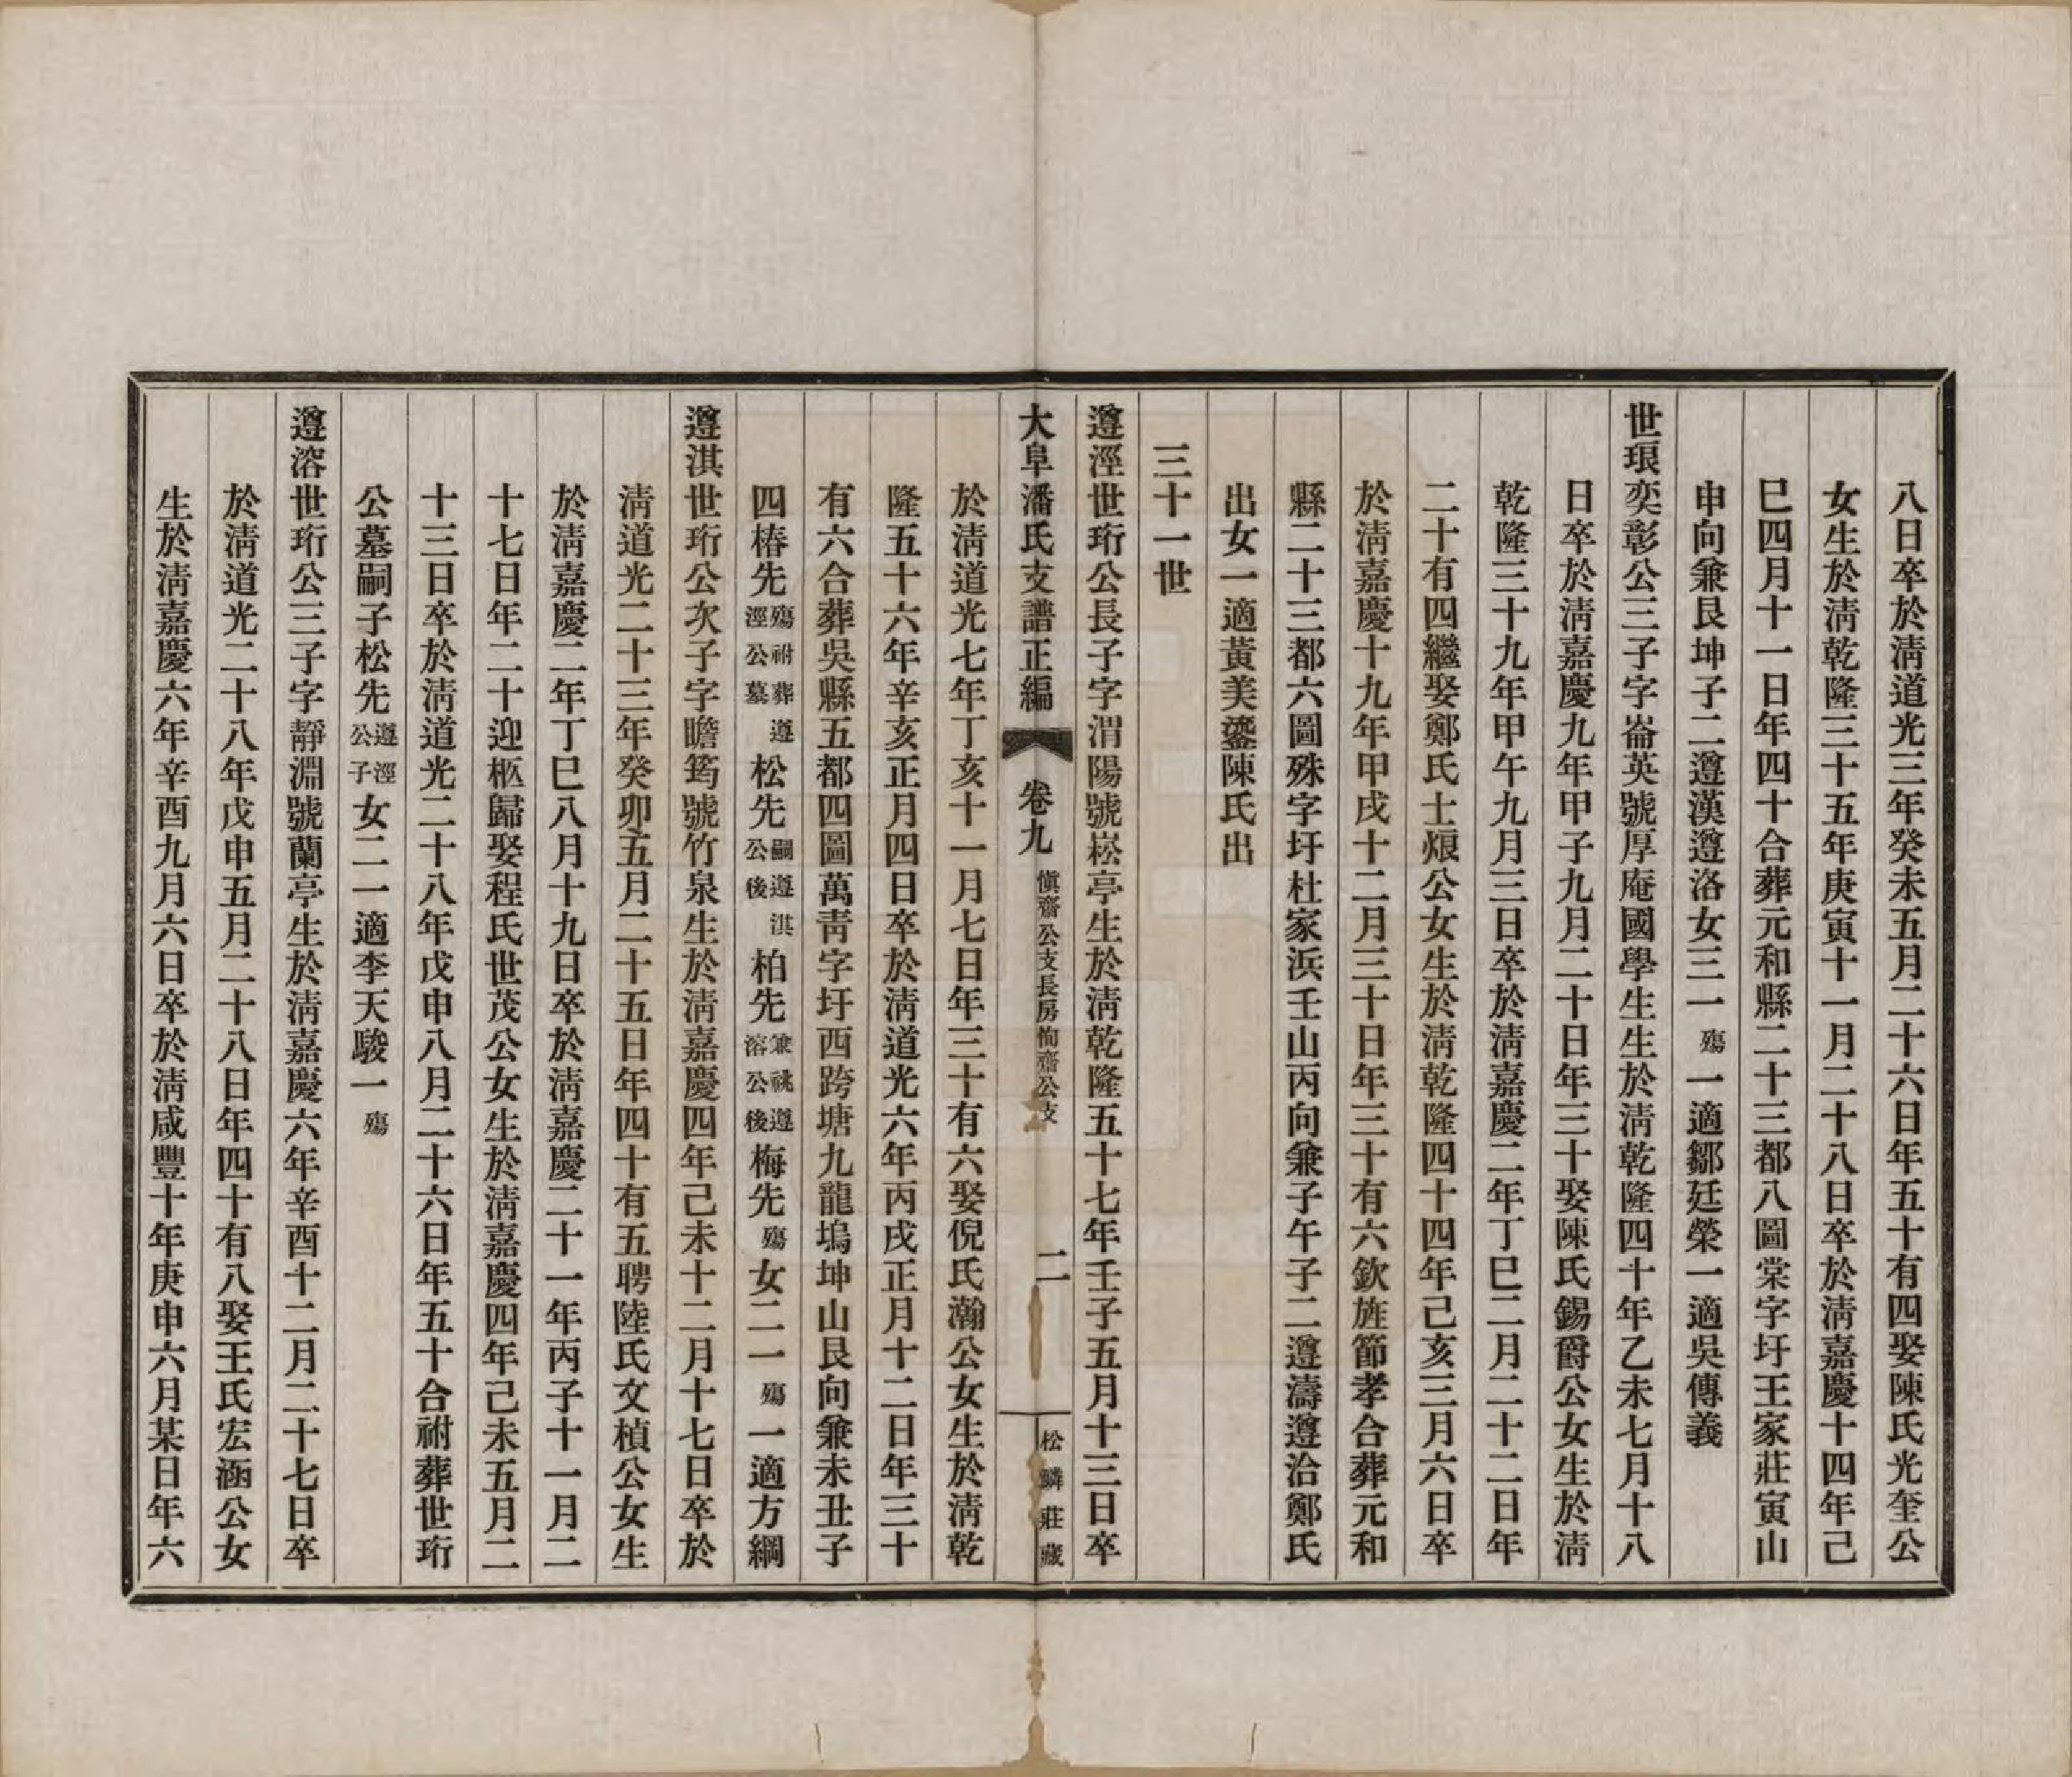 八日卒於淸道光三年癸未五月二十六日年五十有四娶陳氏光奎公
女生於淸乾隆三十五年庚寅十一月二十八日卒於淸嘉慶十四年己
巳四月十一日年四十合葬元和縣二十三都八圖棠字圩王家莊寅山
申向兼艮坤子二遵漢遵洛女三一殤一適鄒廷榮一適吳傳義
世珢奕彰公三子字崙英號厚庵國學生生於淸乾隆四十年乙未七月十八
日卒於淸嘉慶九年甲子九月二十日年三十娶陳氏錫爵公女生於淸
乾隆三十九年甲午九月三日卒於淸嘉慶二年丁巳二月二十二日年
二十有四繼娶鄭氏士烺公女生於淸乾隆四十四年己亥三月六日卒
於淸嘉慶十九年甲戌十二月三十日年三十有六欽旌節孝合葬元和
縣二十三都六圖殊字圩杜家浜壬山丙向兼子午子二遵濤遵洽鄭氏
出女一適黃美鎏陳氏出
三十一世
遵涇世珩公長子字渭陽號崧亭生於淸乾隆五十七年壬子五月十三日卒
大阜潘氏支譜正編 卷九 愼齋公支長房恂齋公支 二 松鱗莊藏
於淸道光七年丁亥十一月七日年三十有六娶倪氏瀚公女生於淸乾
隆五十六年辛亥正月四日卒於淸道光六年丙戌正月十二日年三十
有六合葬吳縣五都四圖萬靑字圩西跨塘九龍塢坤山艮向兼未丑子
四椿先殤祔葬遵涇公墓松先嗣遵淇公後柏先兼祧遵溶公後梅先殤女二一殤一適方綱
遵淇世珩公次子字瞻筠號竹泉生於淸嘉慶四年己未十二月十七日卒於
淸道光二十三年癸卯五月二十五日年四十有五聘陸氏文楨公女生
於淸嘉慶二年丁巳八月十九日卒於淸嘉慶二十一年丙子十一月二
十七日年二十迎柩歸娶程氏世茂公女生於淸嘉慶四年己未五月二
十三日卒於淸道光二十八年戊申八月二十六日年五十合祔葬世珩
公墓嗣子松先遵涇公子女二一適李天駿一殤
遵溶世珩公三子字靜淵號蘭亭生於淸嘉慶六年辛酉十二月二十七日卒
於淸道光二十八年戊申五月二十八日年四十有八娶王氏宏涵公女
生於淸嘉慶六年辛酉九月六日卒於淸咸豐十年庚申六月某日年六